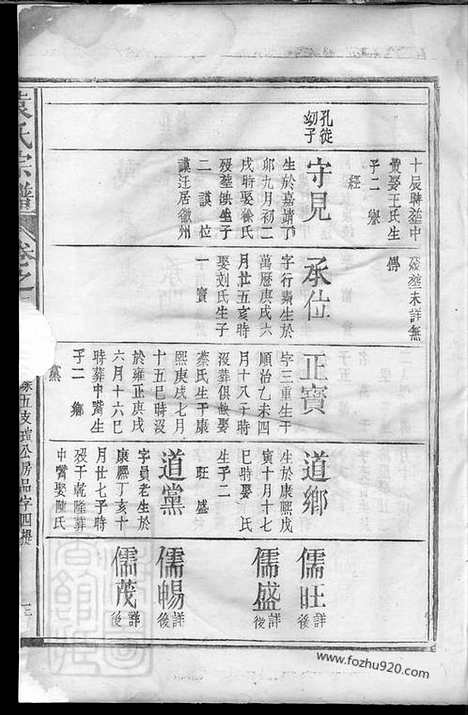 十辰時𦵏中
黃娶王氏生
子二 譽
經
孔從幼子
守見
生於嘉靖丁
卯九月初二
戌時娶徐氏
歿𦵏缺生子
二 謨 位
謨汪居徽州
傳
歿𦵏未詳無
承位
字行素生於
萬歷庚戌六
月廿五亥時
娶劉氏生子
一 寶
正寶
字三重生于
順治乙未四
月十八子時
沒葬俱缺娶
蔡氏生于康
熙庚戌七月
十五巳時沒
於雍正庚戌
六月十六巳
時葬中嘴生
子二 鄉
黨
道鄉
生於康熙戊
寅十月十七
巳時娶 氏
生子二
旺 盛
道黨
字員老生於
康熙丁亥十
月廿七子時
歿于乾隆葬
中嘴娶陳氏
儒旺 詳後
儒盛 詳後
儒暢 詳後
儒茂 詳後
袁氏宗譜
卷之
五支瑄公房品字四樓
十三
www.fozhu920.com